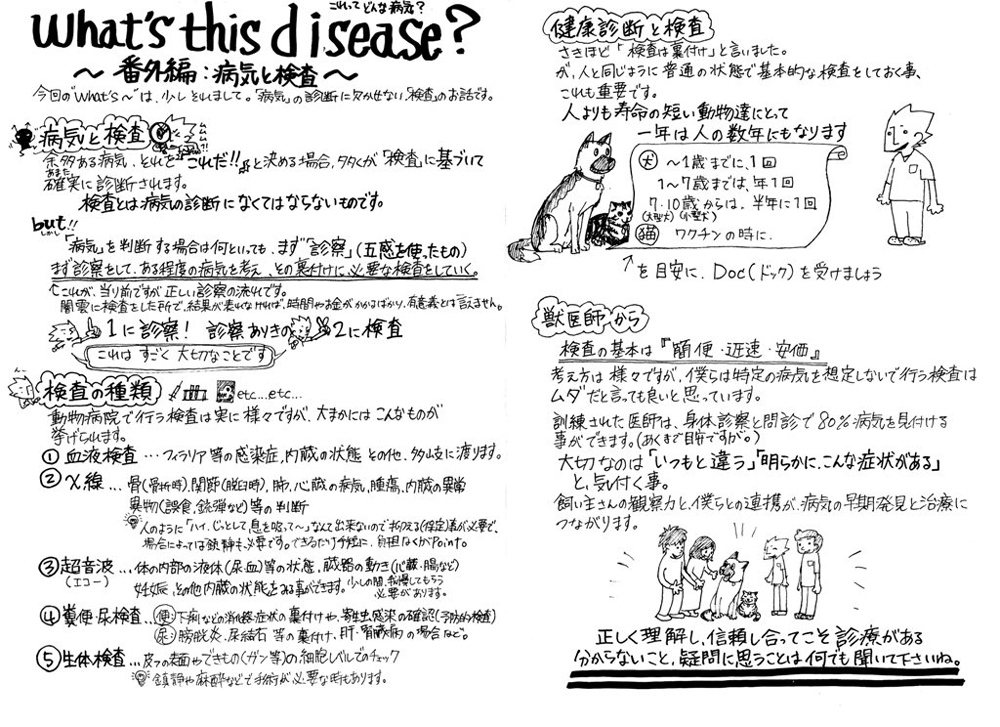 これって どんな病気?
What's this disease?
～ 番外編:病気と検査 ～
今回の"What's～"は、少しそれまして。「病気」の診断に欠かせない「検査」のお話です。
病気と検査
余多ある病気、それを"これだ!!"と決める場合、多くが「検査」に基づいて
あまた
確実に診断されます。
検査とは病気の診断になくてはならないものです。
but!!
しかし
「病気」を判断する場合は何といっても、まず"診察"(五感を使ったもの)
まず診察をして、ある程度の病気を考え、その裏付けに必要な検査をしていく。
↑これが、当り前ですが正しい診察の流れです。
闇雲に検査をした所で、結果が表れなければ、時間やお金がかかるばかり、有意義とは言えません。
1に診察! 診察ありきの 2に検査
これは すごく 大切なことです
検査の種類
etc…etc…
動物病院で行う検査は実に様々ですが、大まかにはこんなものが
挙げられます。
① 血液検査 … フィラリア等の感染症、内蔵の状態 その他、多岐に渡ります。
② X線 … 骨(骨折時)、関節(脱臼時)、肺、心臓の病気、腫瘍、内蔵の異常
異物(誤食、銃弾など)等の判断
人のように「ハイ、じっとして、息を吸って～」なんて出来ないので押さえる(保定)義が必要で、
場合によっては鎮静も必要です。できるだけ手短に、負担なくがPoint。
③ 超音波 … 体の内部の液体(尿・血)等の状態、臓器の動き(心臓・腸など)
(エコー)
妊娠、その他内蔵の状態をみる事ができます。少しの間、我慢してもらう
必要があります。
④ 糞便・尿検査 便:下痢などの消化器症状の裏付けや、寄生虫感染の確認(予防的検査)
尿:膀胱炎、尿結石 等の裏付け、肝・腎臓病の場合など。
⑤ 生体検査 … 皮フの表面やできもの(ガン等)の細胞レベルでのチェック
鎮静や麻酔などで手術が必要な時もあります。
健康診断と検査
さきほど「検査は裏付け」と言いました。
が、人と同じように普通の状態で基本的な検査をしておく事、
これも重要です。
人よりも寿命の短い動物達にとって
一年は人の数年にもなります
犬 ～1歳までに、1回
1～7歳までは、年1回
7・10歳からは、半年に1回
(大型犬)(小型犬)
猫 ワクチンの時に、
↑を目安に、Doc(ドック)を受けましょう
獣医師から
検査の基本は『簡便・迅速・安価』
考え方は様々ですが、僕らは特定の病気を想定しないで行う検査は
ムダだと言っても良いと思っています。
訓練された医師は、身体診察と問診で80%病気を見付ける
事ができます。(あくまで目安ですが。)
大切なのは「いつもと違う」「明らかに、こんな症状がある」
と、気付く事。
飼い主さんの観察力と、僕らとの連携が、病気の早期発見と治療に
つながります。
正しく理解し、信頼し合ってこそ診療がある
分からないこと、疑問に思うことは何でも聞いて下さいね。